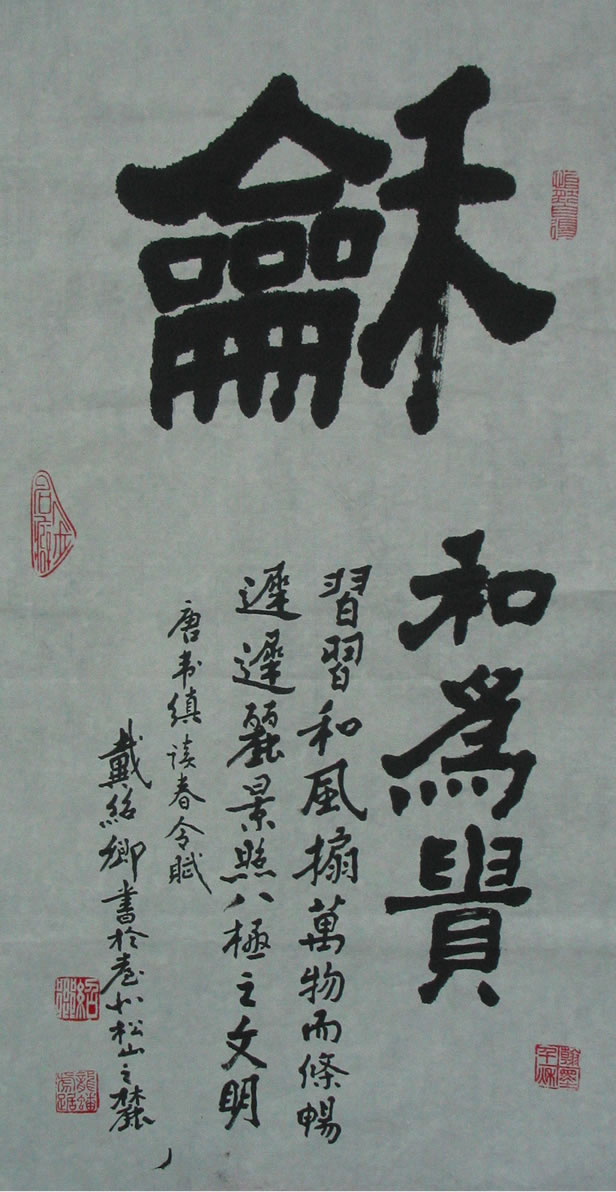 龢
和為貴
習習和風搧萬物而條暢
遲遲麗景照八極之文明
唐韦縝读春令賦
戴紹卿書於臺北松山之麓